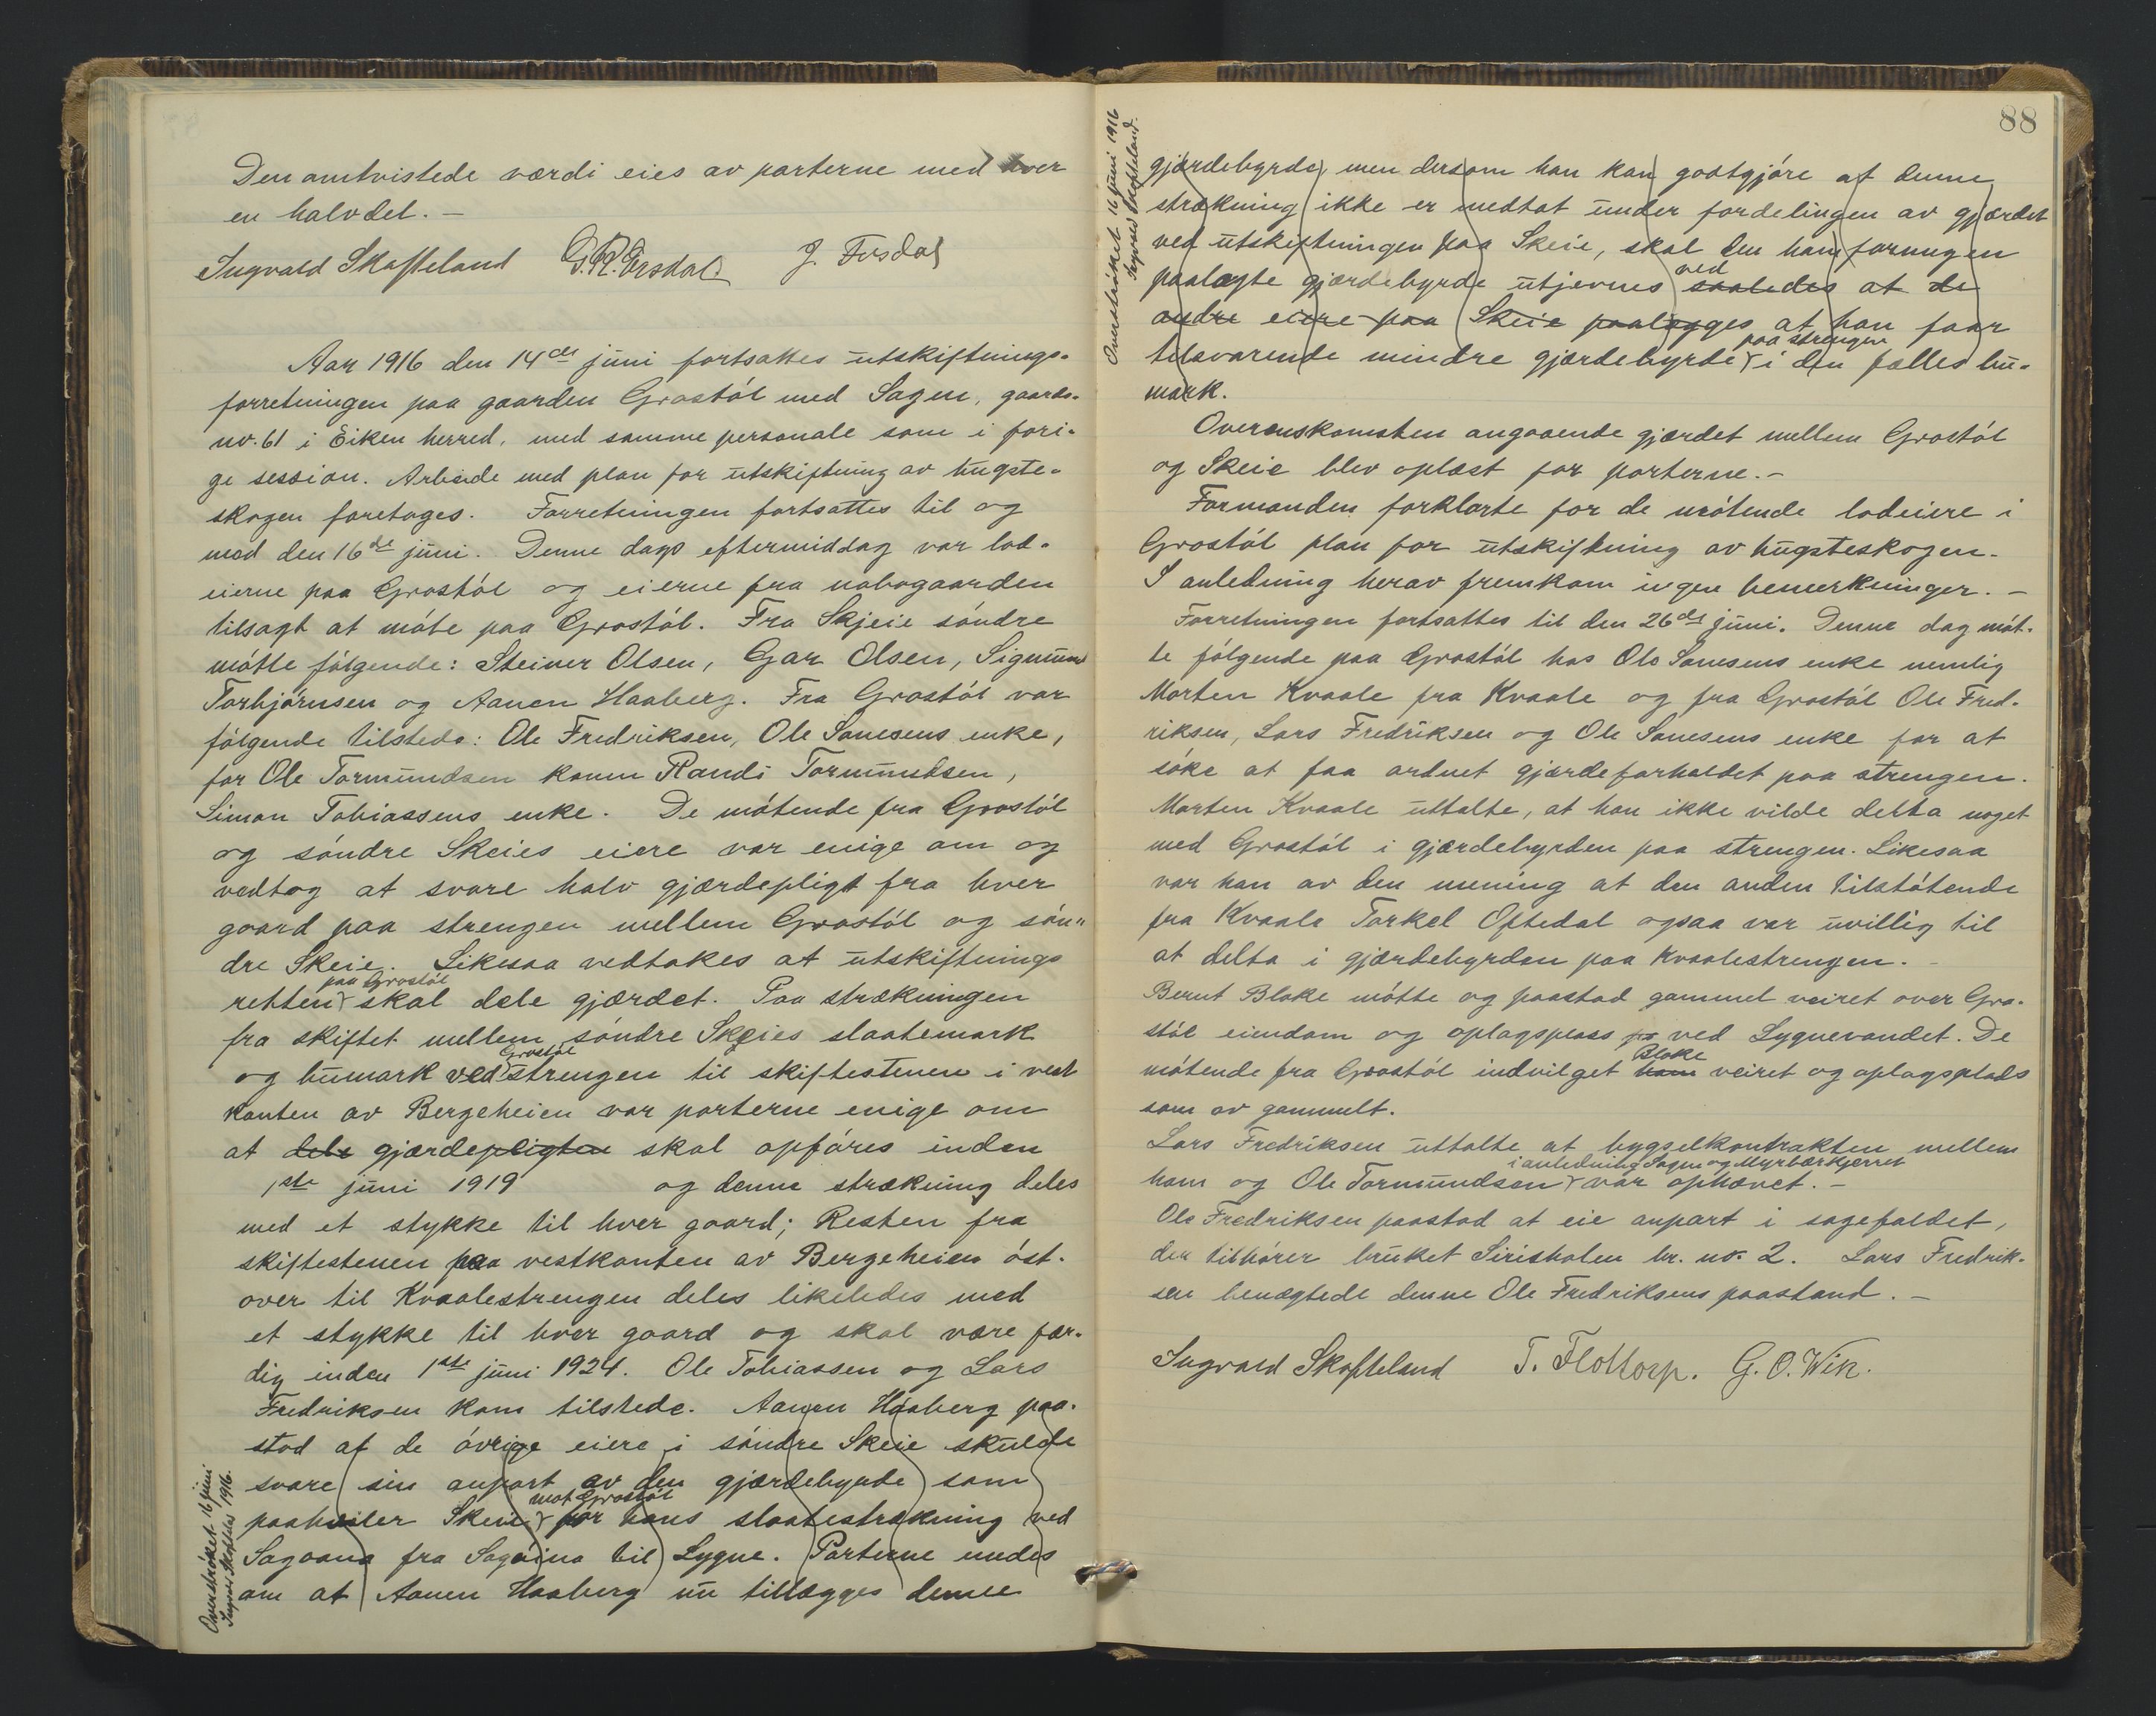 Den omtvistede værdi eies av parterne med hver
en halvdel. —
Ingvald Skofteland G. R. Ersdal J. Fosdal
Aar 1916 den 14de juni fortsattes utskiftnings-
forretningen paa gaarden Grostøl med Sagen, gaards-
no. 61 i Eiken herred, med samme personale som i fori-
ge session. Arbeide med plan for utskiftning av hugste-
skogen foretoges. Forretningen fortsattes til og
med den 16de juni. Denne dags eftermiddag var lod-
eierne paa Grostøl og eierne fra nabogaarden
tilsagt at møte paa Grostøl. Fra Skjeie søndre
møtte følgende: Steiner Olsen, Gar Olsen, Sigmund
Torbjørnsen og Aanen Haaberg. Fra Grostøl var
følgende tilstede: Ole Fredriksen, Ole Sanesens enke,
for Ole Tormundsen konen Randi Tormundsen,
Simon Tobiassens enke. De møtende fra Grostøl
og søndre Skeies eiere var enige om og
vedtog at svare halv gjærdepligt fra hver
gaard paa strengen mellem Grostøl og søn"
dre Skeie. Likesaa vedtokes at utskiftnings
paa Grostøl
retten skal dele gjærdet. Paa strækningen
fra skiftet mellem søndre Skeies slaatemark
Grostøl
og bumark ved strengen til skiftestenen i vest
kanten av Bergeheien var parterne enige om
at dele gjærdepligten skal opføres inden
1ste juni 1919 og denne strækning deles
med et stykke til hver gaard; Resten fra
skiftestenen paa vestkanten av Bergeheien øst-
over til Kvaalestrengen deles likeledes med
et stykke til hver gaard og skal være fær-
dig inden 1ste juni 1924. Ole Tobiassen og Lars
Fredriksen kom tilstede. Aanen Haaberg paa-
stod at de øvrige eiere i søndre Skeie skulde
svare sin anpart av den gjærdebyrde som
mot Grostøl
paahviler Skeie for hans slaatestrækning ved
Sagaana fra til Lygne. Parterne enedes
om at Aanen Haaberg nu tillægges denne
Overstrøket 16 juni
Ingvald Skofteland 1916.
88
Overstrøket 16 juni 1916
Ingvald Skofteland.
gjærdebyrde, men dersom han kan godtgjøre at denne
strækning ikke er medtat under fordelingen av gjærdet
ved utskiftningen paa Skeie, skal den ham forungen
ved
paalagte gjærdebyrde utjevnes saaledes at de
andre eiere paa Skeie paalægges at han faar
paa strengen
tilsvarende mindre gjærdebyrde i den fælles bu-
mark.
Overenskomsten angaaende gjærdet mellem Grostøl
og Skeie blev oplæst for parterne. —
Formanden forklarte for de møtende lodeiere i
Grostøl plan for utskiftning av hugsteskogen.
I anledning herav fremkom ingen bemerkninger. —
Forretningen fortsattes til den 26de juni. Denne dag møt-
te følgende paa Grostøl hos Ole Sanesens enke nemlig
Morten Kvaale fra Kvaale og fra Grostøl Ole Fred-
riksen, Lars Fredriksen og Ole Sanesens enke for at
søke at faa ordnet gjærdeforholdet paa strengen.
Morten Kvaale uttalte, at han ikke vilde delta noget
med Grostøl i gjærdebyrden paa strengen. Likesaa
var han av den mening at den anden tilstøtende
fra Kvaale Torkel Oftedal ogsaa var uvillig til
at delta i gjærdebyrden paa Kvaalestrengen. —
Bernt Blake møtte og paastod gammel veiret over Gro-
støl eiendom og oplagsplass pa ved Lygnevandet. De
Blake
møtende fra Grostøl indvilget ham veiret og oplagsplads
som av gammelt.
Lars Fredriksen uttalte at bygselkontrakten mellem
i anledning Sagen og Myrbærkjerret
ham og Ole Tormundsen var ophævet. —
Ole Fredriksen paastod at eie anpart i sagefaldet,
den tilhører bruket Sirisholen br. no. 2. Lars Fredrik-
sen benægtede denne Ole Fredriksens paastand. —
Ingvald Skofteland T. Flottorp. G. O. Wik.